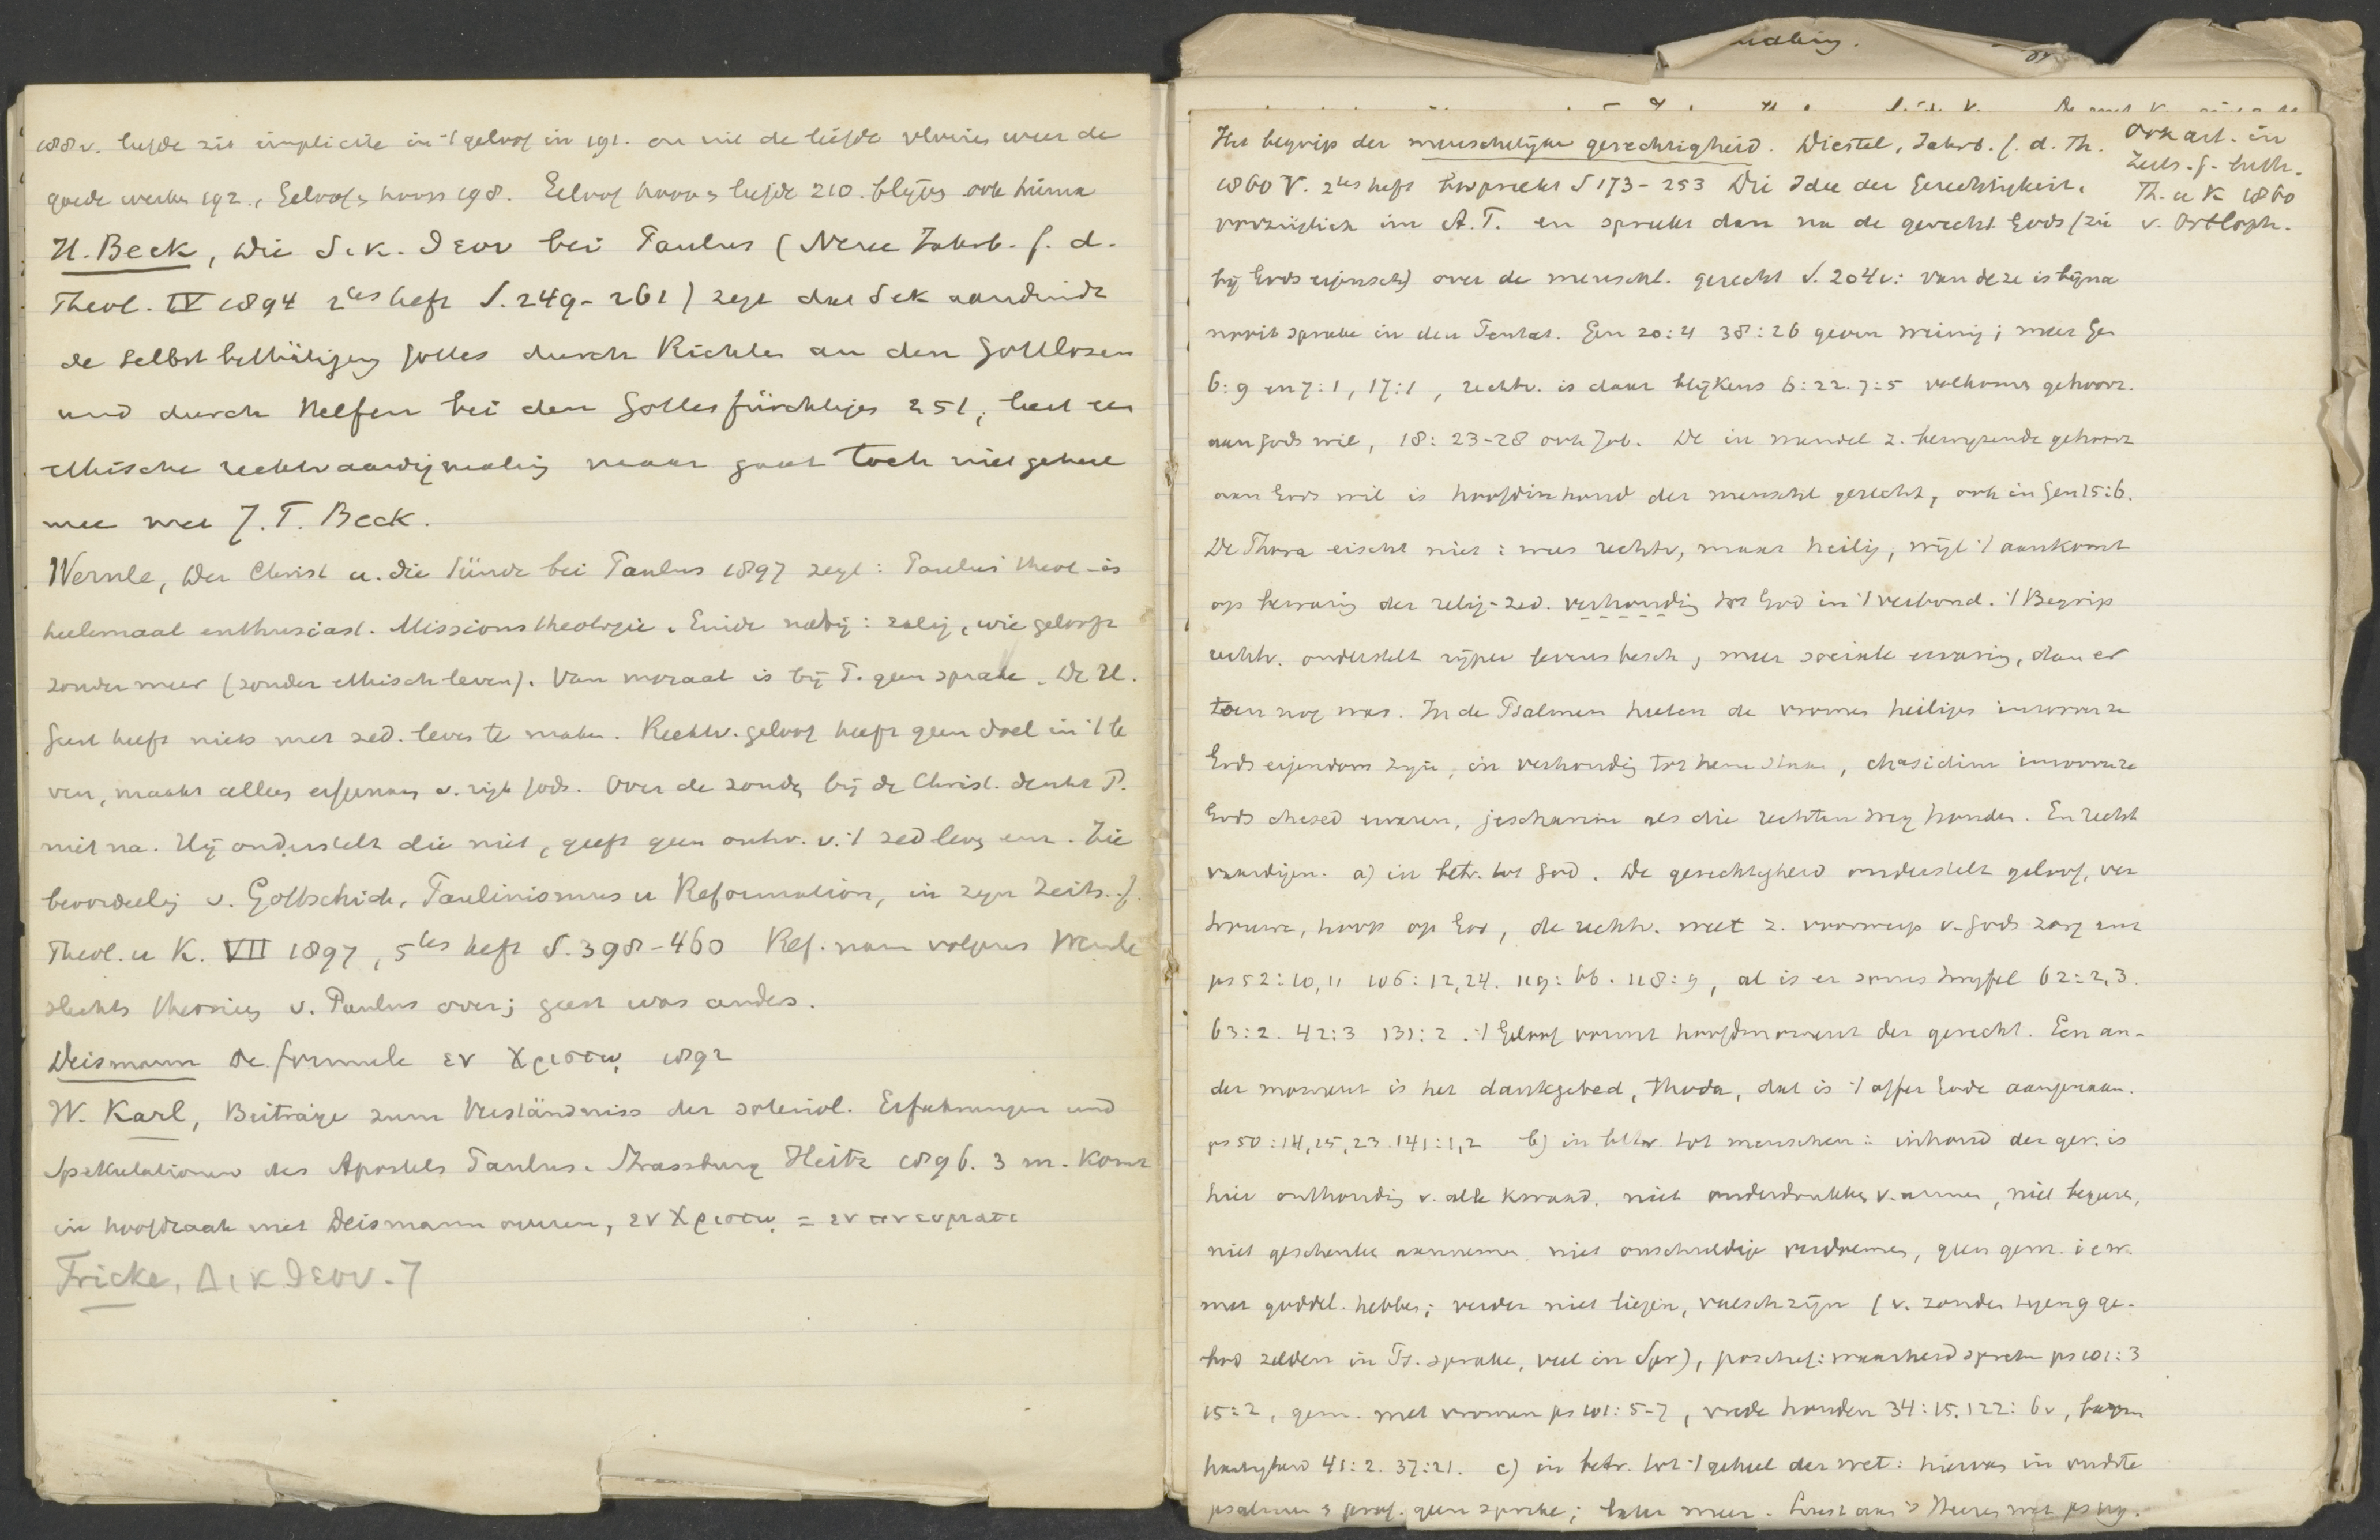 188v. liefde zit implicite in 't geloof in 191. en uit de liefde vloeien weer de
goede werken 192., Geloof en hoop 198. Geloof hoop en liefde 210. blijven ook hierna
H. Beck, Die δικ. θεου bei Paulus (Neue Jahrb. f. d.
Theol. IV 1894 2tes heft S. 249-261) zegt dat δικ aanduidt
de Selbstbethätigung Gottes durch Richten an den Gottlosen
und durch Helfen bei den Gottesfürchtigen 251, leert een
ethische rechtvaardigmaking maar gaat toch niet geheel
mee met J. T. Beck.
Wernle, Der Christ u. die Sünde bei Paulus 1897 zegt: Paulus' theol. is
heelemaal enthusiast. Missionstheologie. Einde nabij: zalig, wie gelooft
zonder meer (zonder ethisch leven). Van moraal is bij P. geen sprake. De H.
Geest heeft niets met zed. leven te maken. Rechtv. geloof heeft geen doel in 't le
ven, maakt alleen erfgenaam v. rijk Gods. Over de zonde bij de Christ. denkt P.
niet na. Hij onderstelt die niet, geeft geen ontw. v. 't zed leven enz. Zie
beoordeling v. Gottschick, Paulinismus u Reformation, in zijn Zeits. f.
Theol. u K. VII 1897, 5tes heft S. 398-460 Ref. nam volgens Wernle
slechts theorieen v. Paulus over; geest was anders.
Deismann de formule εν Χριστω 1892
W. Karl, Beiträge zum Verständniss der soteriol. Erfahrungen und
Spekulationen des Apostels Paulus. Strassburg Heitz 1896. 3 m. Komt
in hoofdzaak met Deismann overeen, εν Χριστω = εν πνευματι
Fricke, Δικ θεου. 7
Het begrip der menschelijke gerechtigheid. Diestel, Jahrb. f. d. Th.
1860 V. 2tes heft bespreekt S 173-253 Die Idee der Gerechtigkeit,
vorzüglich im A.T. en spreekt dan na de gerecht. Gods (zie
bij Gods eigensch) over de menschl. gerecht S. 204v: van deze is bijna
nooit sprake in den Pentat. Gen 20:4 38:26 geven weinig; meer Gen
6:9 en 7:1, 17:1, rechtv. is daar blijkens 6:22. 7:5 volkomen gehoorz.
aan Gods wil, 18:23-28 ook Job. De in wandel z. bewijzende gehoorz
aan Gods wil is hoofdinhoud der menschl gerecht, ook in Gen 15:6.
De Thora eischt niet: wees rechtv, maar heilig, wijl 't aankomt
op bewaring der relig-zed. verhouding tot God in 't verbond. 't Begrip
rechtv. onderstelt rijper levensbesch, meer sociale ervaring, dan er
toen nog was. In de Psalmen heeten de vromen heiligen inzooverre ze
Gods eigendom zijn, in verhouding tot hem staan, chasidim inzooverre ze
Gods chesed ervaren, jescharim als die rechten weg houden. En recht
vaardigen. a) in betr. tot God. De gerechtigheid onderstelt geloof, ver
trouwen, hoop op God, de rechtv. weet z. voorwerp v. Gods zorg enz
ps 52:10,11 106:12,24. 119:66. 118:9, al is er soms twijfel 62:2,3.
63:2. 42:3 131:2. 't Geloof vormt hoofdmoment der gerecht. Een an-
der moment is het dankgebed, thoda, dat is 't offer Gode aangenaam.
ps 50:14,15,23. 141:1,2 b) in betr. tot menschen: inhoud der ger. is
hier onthouding v. alle kwaad, niet onderdrukken v. armen, niet
niet geschenken aannemen niet onschuldige verdoemen, geen gem.
met goddel. hebben; verder niet liegen, valsch zijn (v. zonden tegen 9 ge-
bod zelden in Ps. sprake, veel in Spr), positief: waarheid spreken ps 101:3
15:2, gem. met vromen ps 101:5-7, vrede houden 34:15. 122:6v, barm
hartigheid 41:2. 37:21. c) in betr. tot 't geheel der wet: hiervan in oudste
psalmen & prof. geen sprake; later meer. Lust aan 's Heeren wet ps 119.
Ook art. in
Zeits. f. luth.
Th. u K 1860
v. Ortloph.